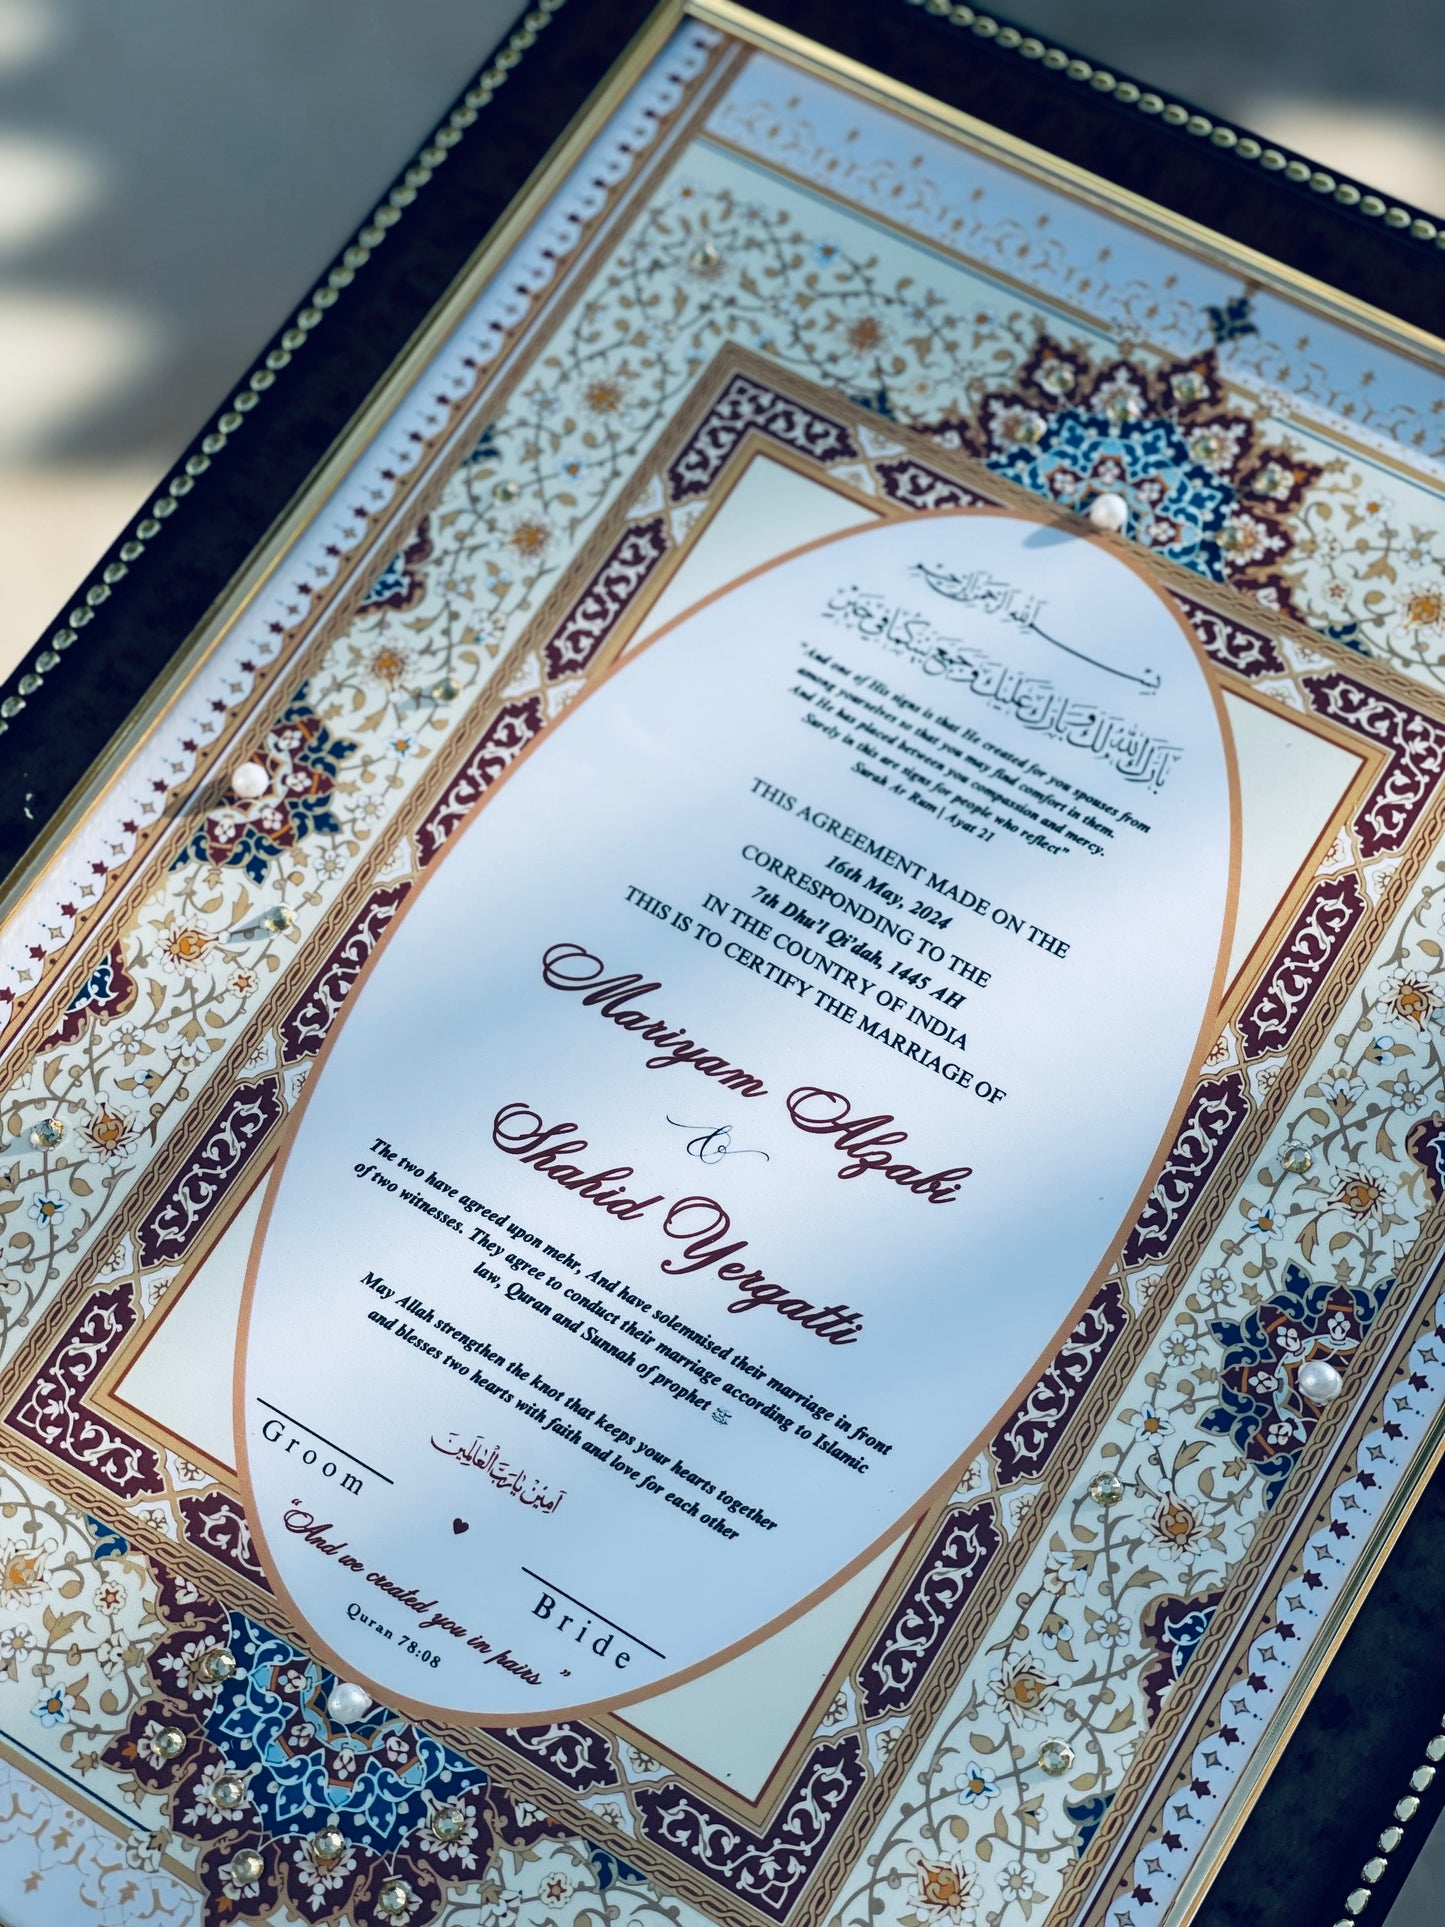 بسم الله الرحمن الرحيم
بَارَكَ اللهُ لَكَ وَبَارَكَ عَلَيْكَ وَجَمَعَ بَيْنَكُمَا فِي خَيْرٍ
"And one of His signs is that He created for you spouses from
among yourselves so that you may find comfort in them.
And He has placed between you compassion and mercy.
Surely in this are signs for people who reflect"
Surah Ar Rum | Ayat 21
THIS AGREEMENT MADE ON THE
16th May, 2024
CORRESPONDING TO THE
7th Dhu'l Qi'dah, 1445 AH
IN THE COUNTRY OF INDIA
THIS IS TO CERTIFY THE MARRIAGE OF
Mariyam Alzabi
&
Shahid Yergatti
The two have agreed upon mehr, And have solemnised their marriage in front
of two witnesses. They agree to conduct their marriage according to Islamic
law, Quran and Sunnah of prophet ﷺ
May Allah strengthen the knot that keeps your hearts together
and blesses two hearts with faith and love for each other
آمِيْن يَا رَبَّ الْعَالَمِيْنَ
Groom
Bride
"And we created you in pairs"
Quran 78:08